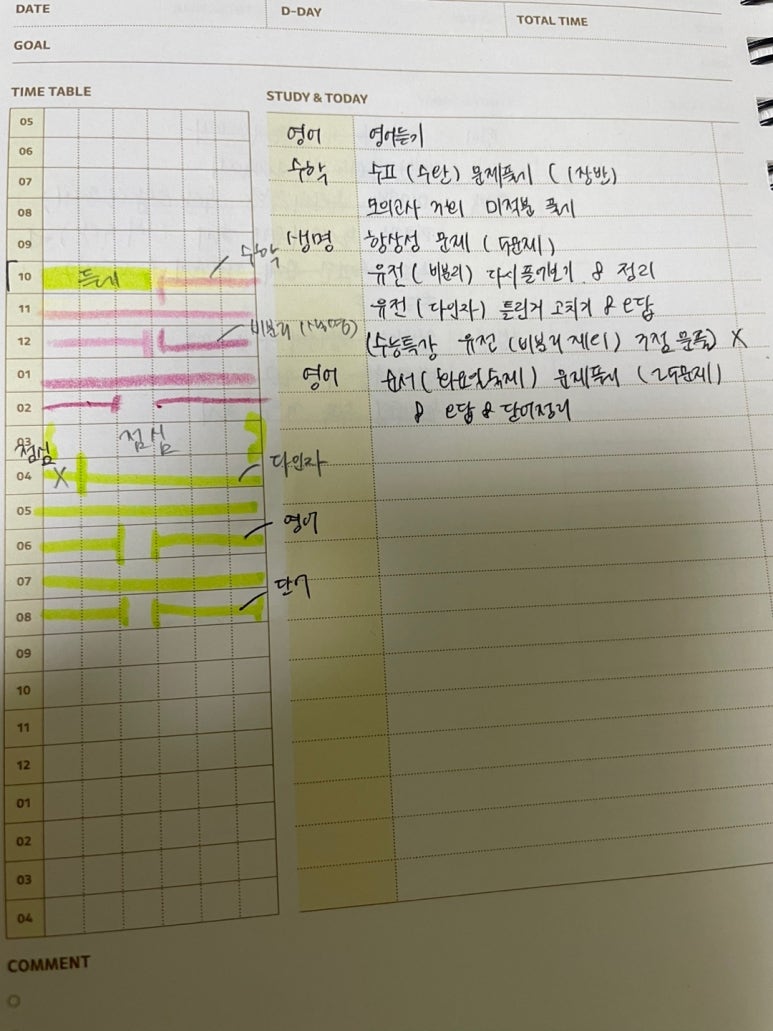 DATE
D-DAY
TOTAL TIME
GOAL
TIME TABLE
STUDY & TODAY
05
06
07
08
09
10 듣기
11
12
01
02
03 점심
점심
04 X
05
06
07
08
09
10
11
12
01
02
03
04
수학
비분리 (생명)
다인자
영어
단어
영어 영어듣기
수학 수표 (수완) 문제풀기 (1장반)
모의고사 미적분 풀기
생명 항상성 문제 (5문제)
유전 (비분리) 다시 풀어보기 & 정리
유전 (다인자) 틀린거 고치기 & 오답
(수능특강 유전 (비분리 제외) 문풀) X
영어 순서 (화요일숙제) 문제풀기 (25문제)
& 오답 & 단어정리
COMMENT